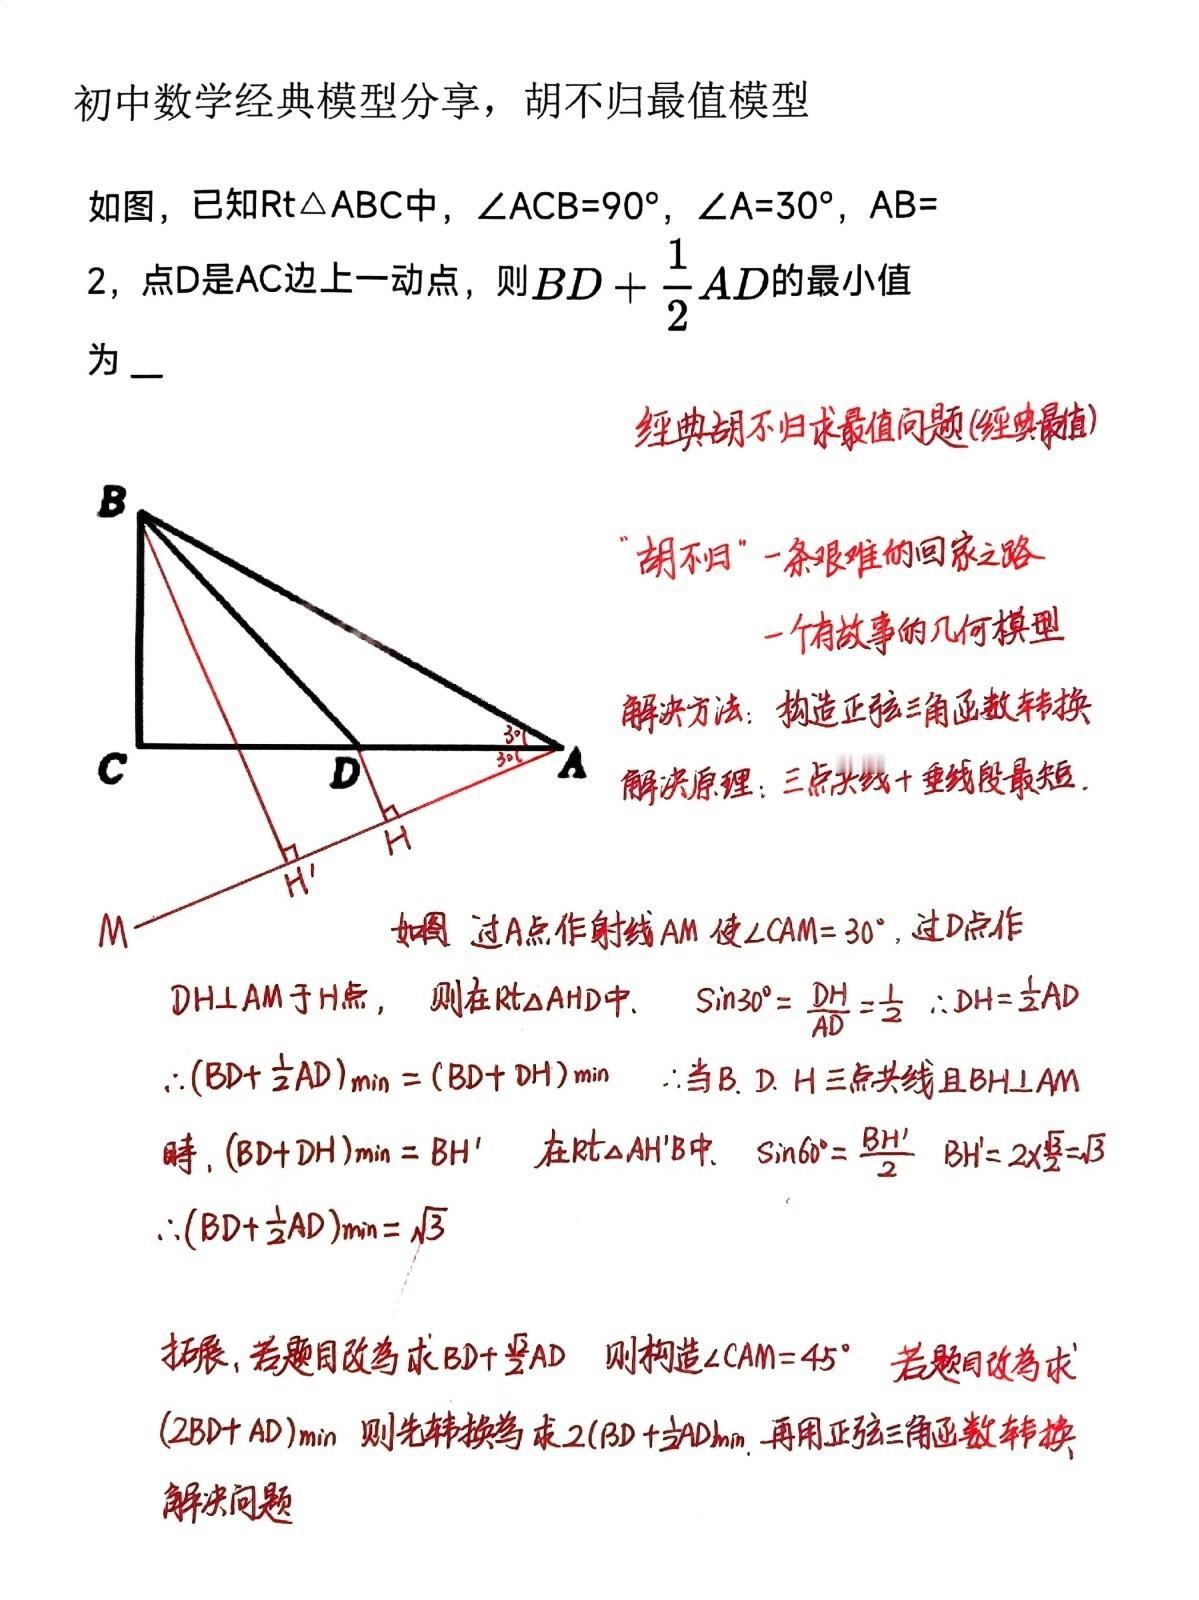 初中数学经典模型分享，胡不归最值模型
如图，已知Rt△ABC中，∠ACB=90°，∠A=30°，AB=
2，点D是AC边上一动点，则BD+\frac{1}{2}AD的最小值
为 __
经典胡不归求最值问题(经典最值)
"胡不归"一条艰难的回家之路
一个有故事的几何模型
解决方法：构造正弦三角函数转换
解决原理：三点共线+垂线段最短.
B
C
D
A
30°
30°
H
H'
M
如图 过A点作射线AM 使∠CAM=30°，过D点作
DH⊥AM于H点， 则在Rt△AHD中. Sin30°=\frac{DH}{AD}=\frac{1}{2} ∴DH=\frac{1}{2}AD
∴(BD+\frac{1}{2}AD)min=(BD+DH)min ∴当B.D.H三点共线且BH⊥AM
時，(BD+DH)min=BH' 在Rt△AH'B中. Sin60°=\frac{BH'}{2} BH'=2×\frac{√3}{2}=√3
∴(BD+\frac{1}{2}AD)min=√3
拓展，若题目改為求BD+\frac{√2}{2}AD 则构造∠CAM=45° 若题目改為求
(2BD+AD)min 则先转换為求2(BD+\frac{1}{2}AD)min.再用正弦三角函数转换
解决问题